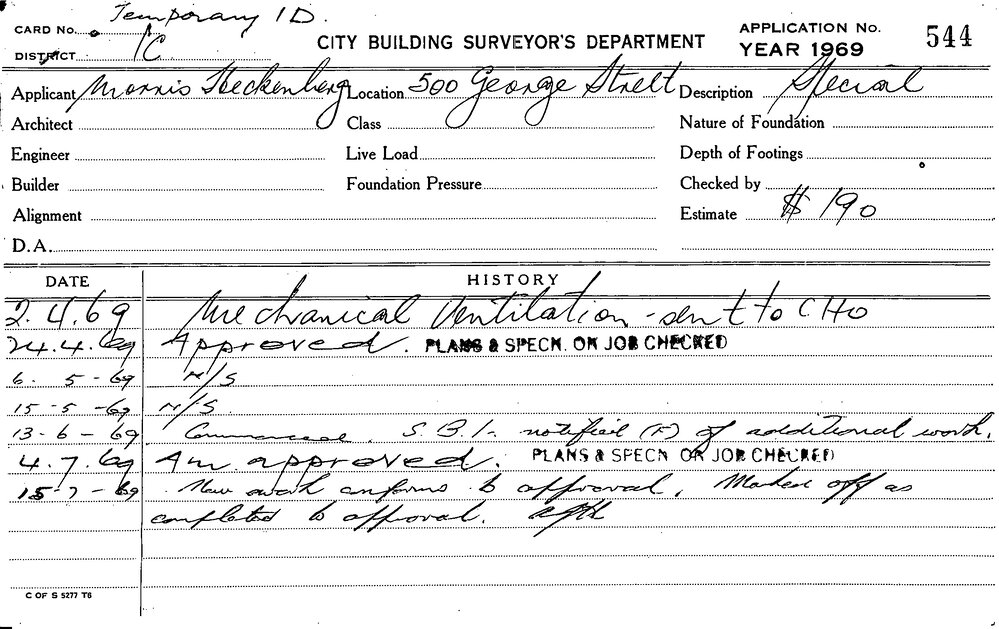 Temporary ID.
CARD No.
DISTRICT 1C
CITY BUILDING SURVEYOR'S DEPARTMENT
APPLICATION No. 544
YEAR 1969
Applicant Morris Heckenberg Location 500 George Street Description Special
Architect Class Nature of Foundation
Engineer Live Load Depth of Footings
Builder Foundation Pressure Checked by
Alignment Estimate $190
D.A.
DATE HISTORY
2.4.69 Mechanical Ventilation - sent to CHO
24.4.69 Approved. PLANS & SPECN. ON JOB CHECKED
6.5-69 N/S
15-5-69 N/S
13-6-69 Commenced. S.B.I. notified (F) of additional work.
4.7.69 Am approved. PLANS & SPECN ON JOB CHECKED
15-7-69 New work conforms to approval. Marked off as
completed to approval.
C OF S 5277 T6